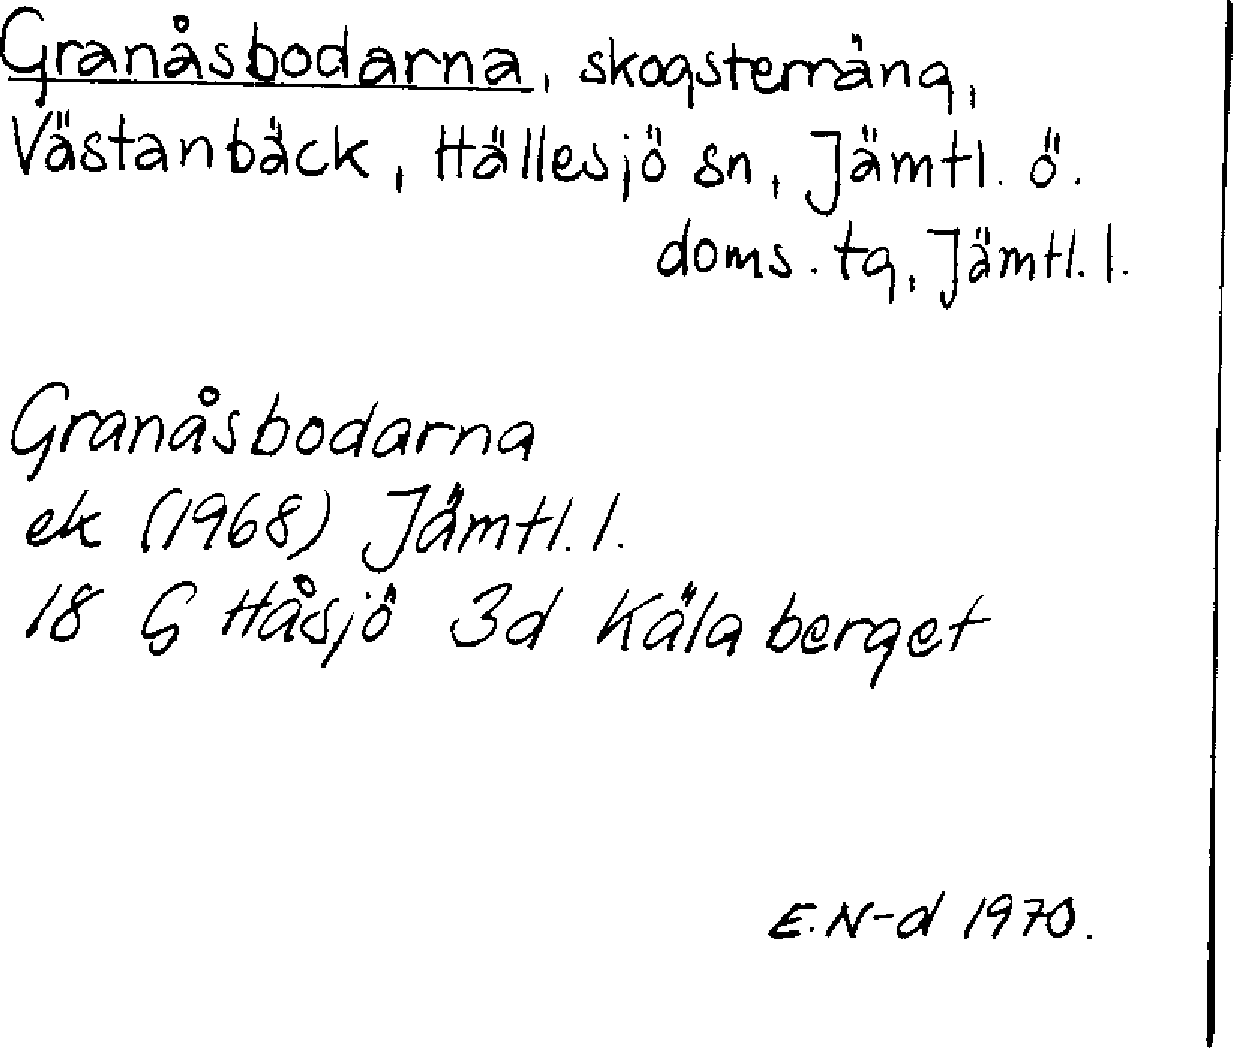 Granåsbodarna, skogsterräng,
Västanbäck, Hällesjö sn, Jämtl. ö.
doms. tg, Jämtl. l.
Granåsbodarna
ek (1968) Jämtl. l.
18 G Håsjö 3d Kälaberget
E. N-d 1970.